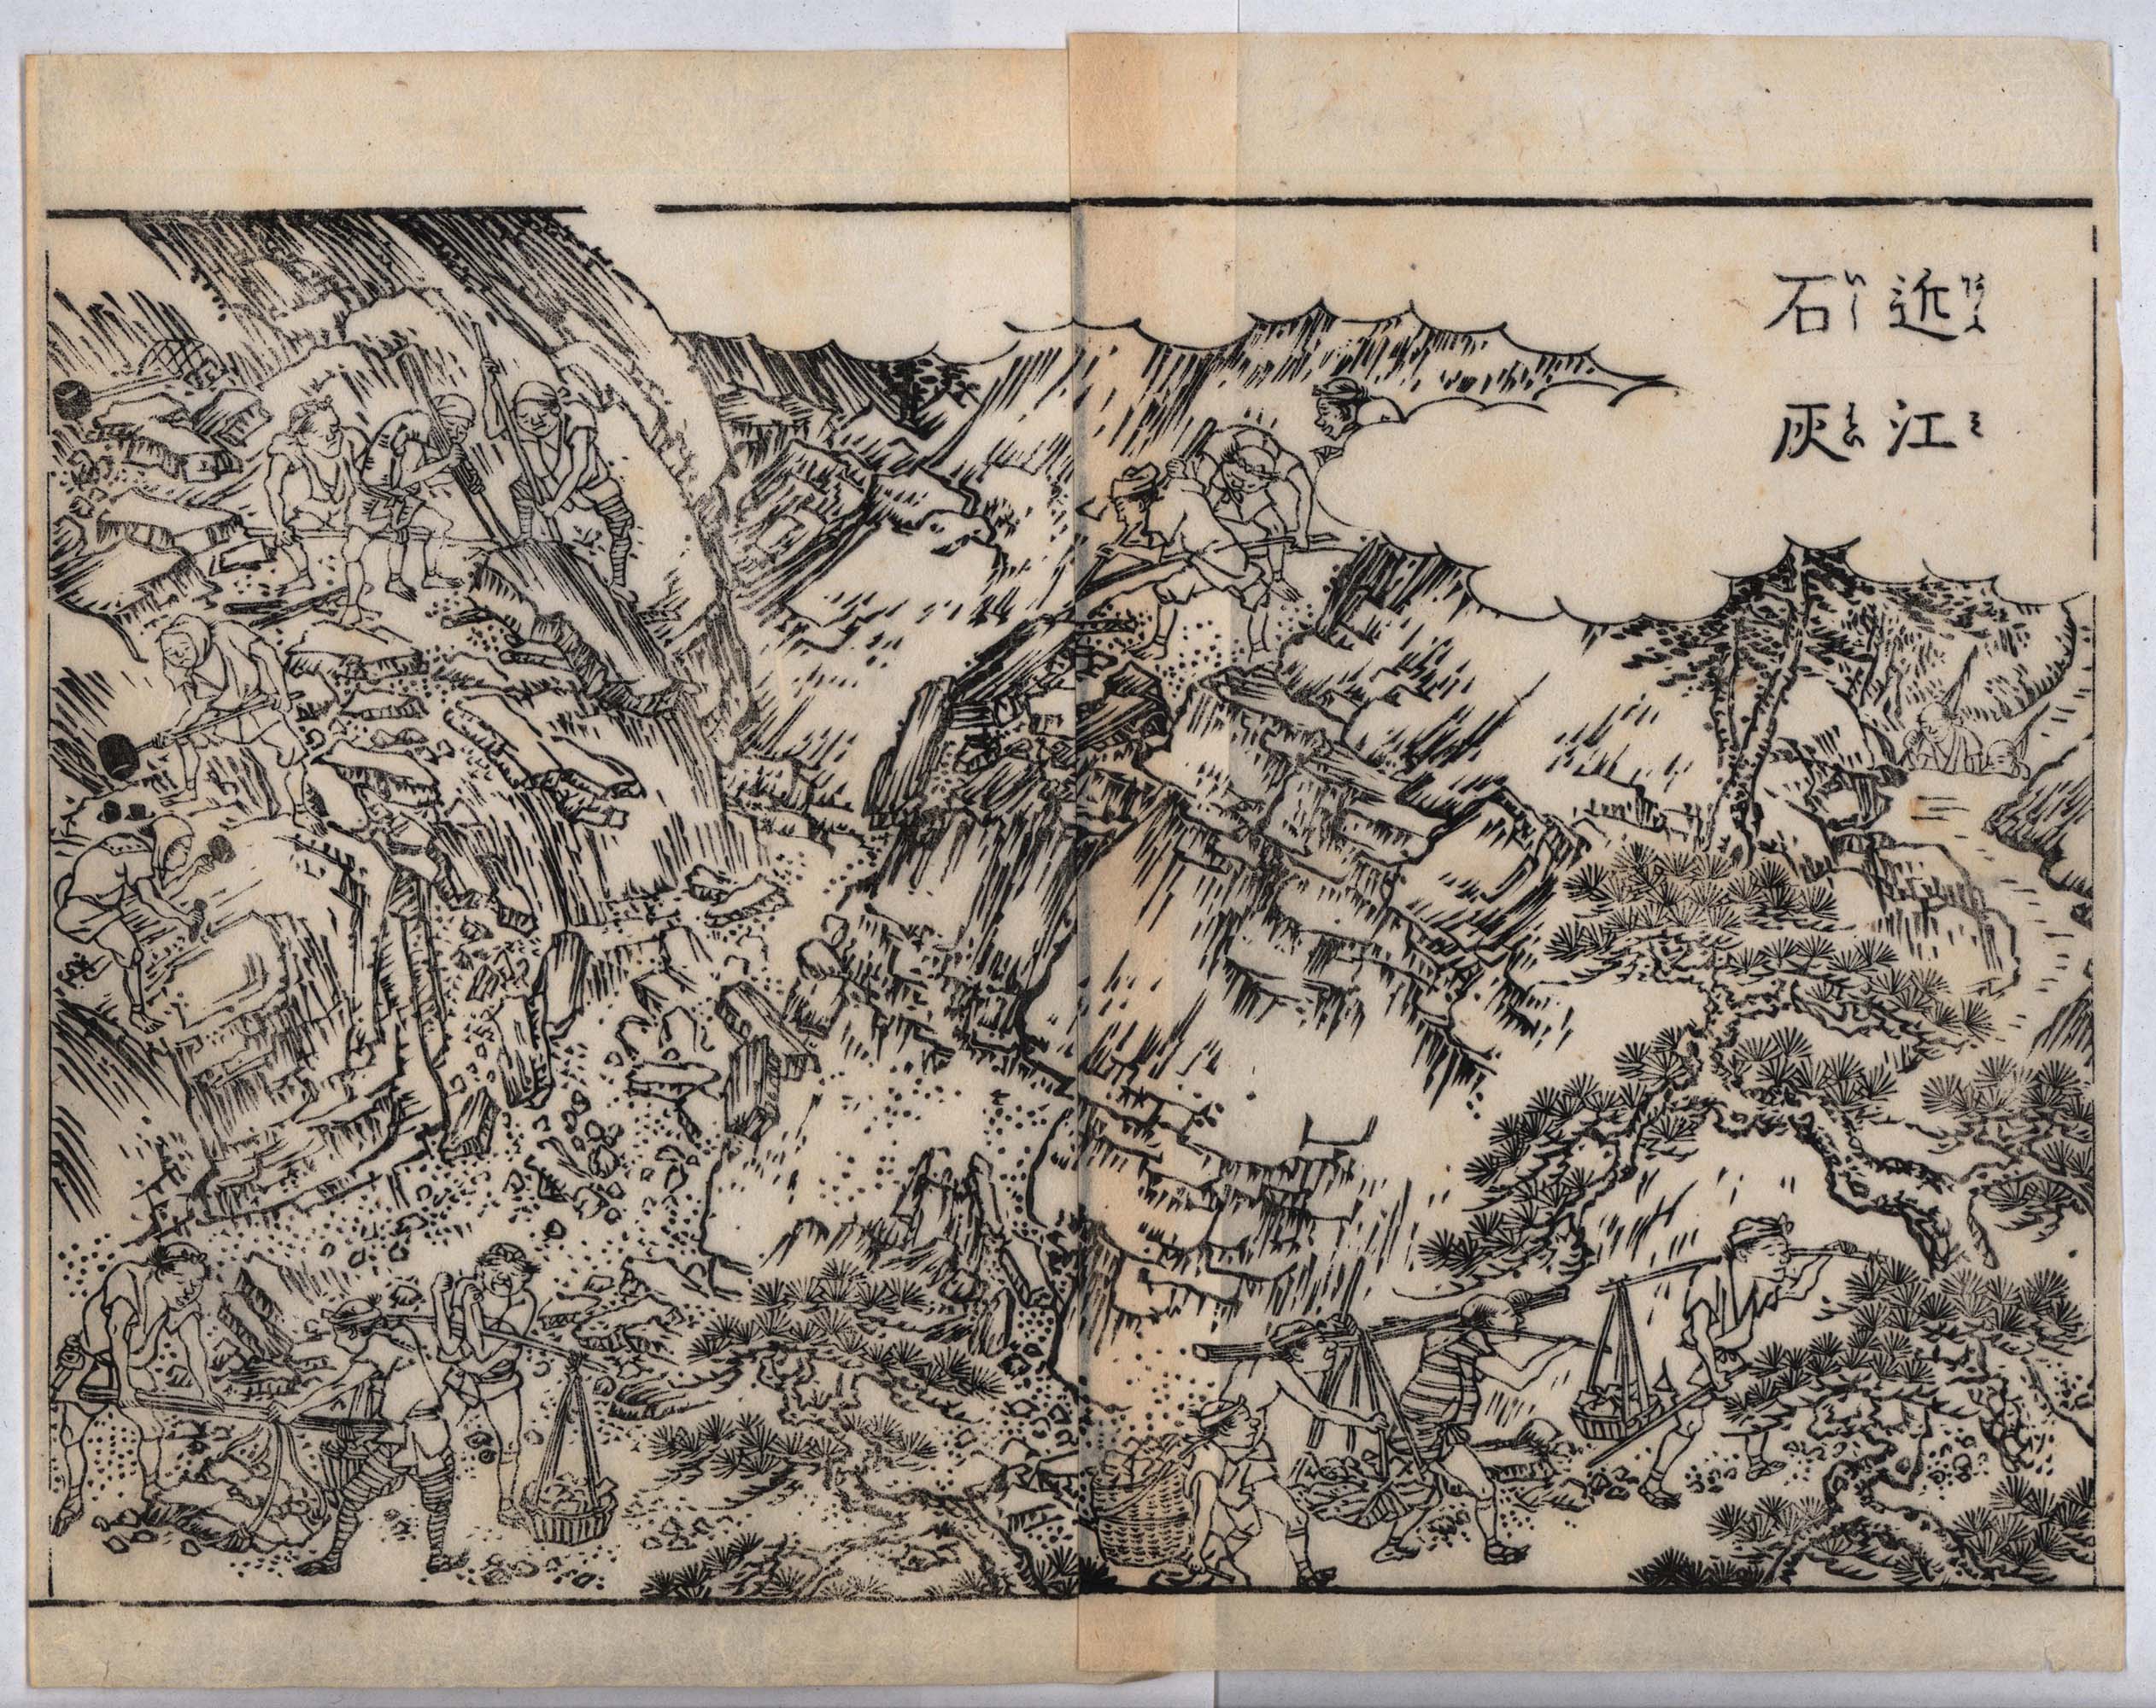 近江
石灰